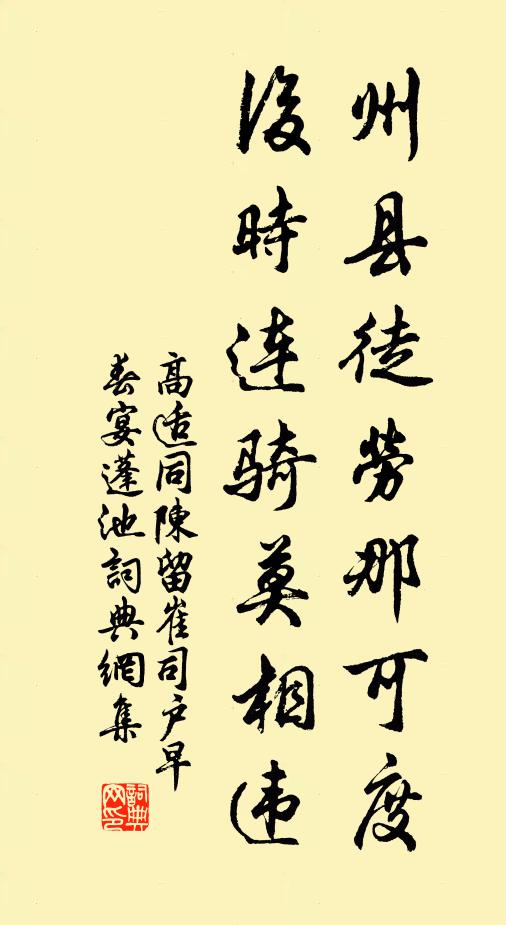 州县徒劳那可度
後時连骑莫相违
高适同陳留崔司户早
春宴蓬池詞典網集
詞典
网印